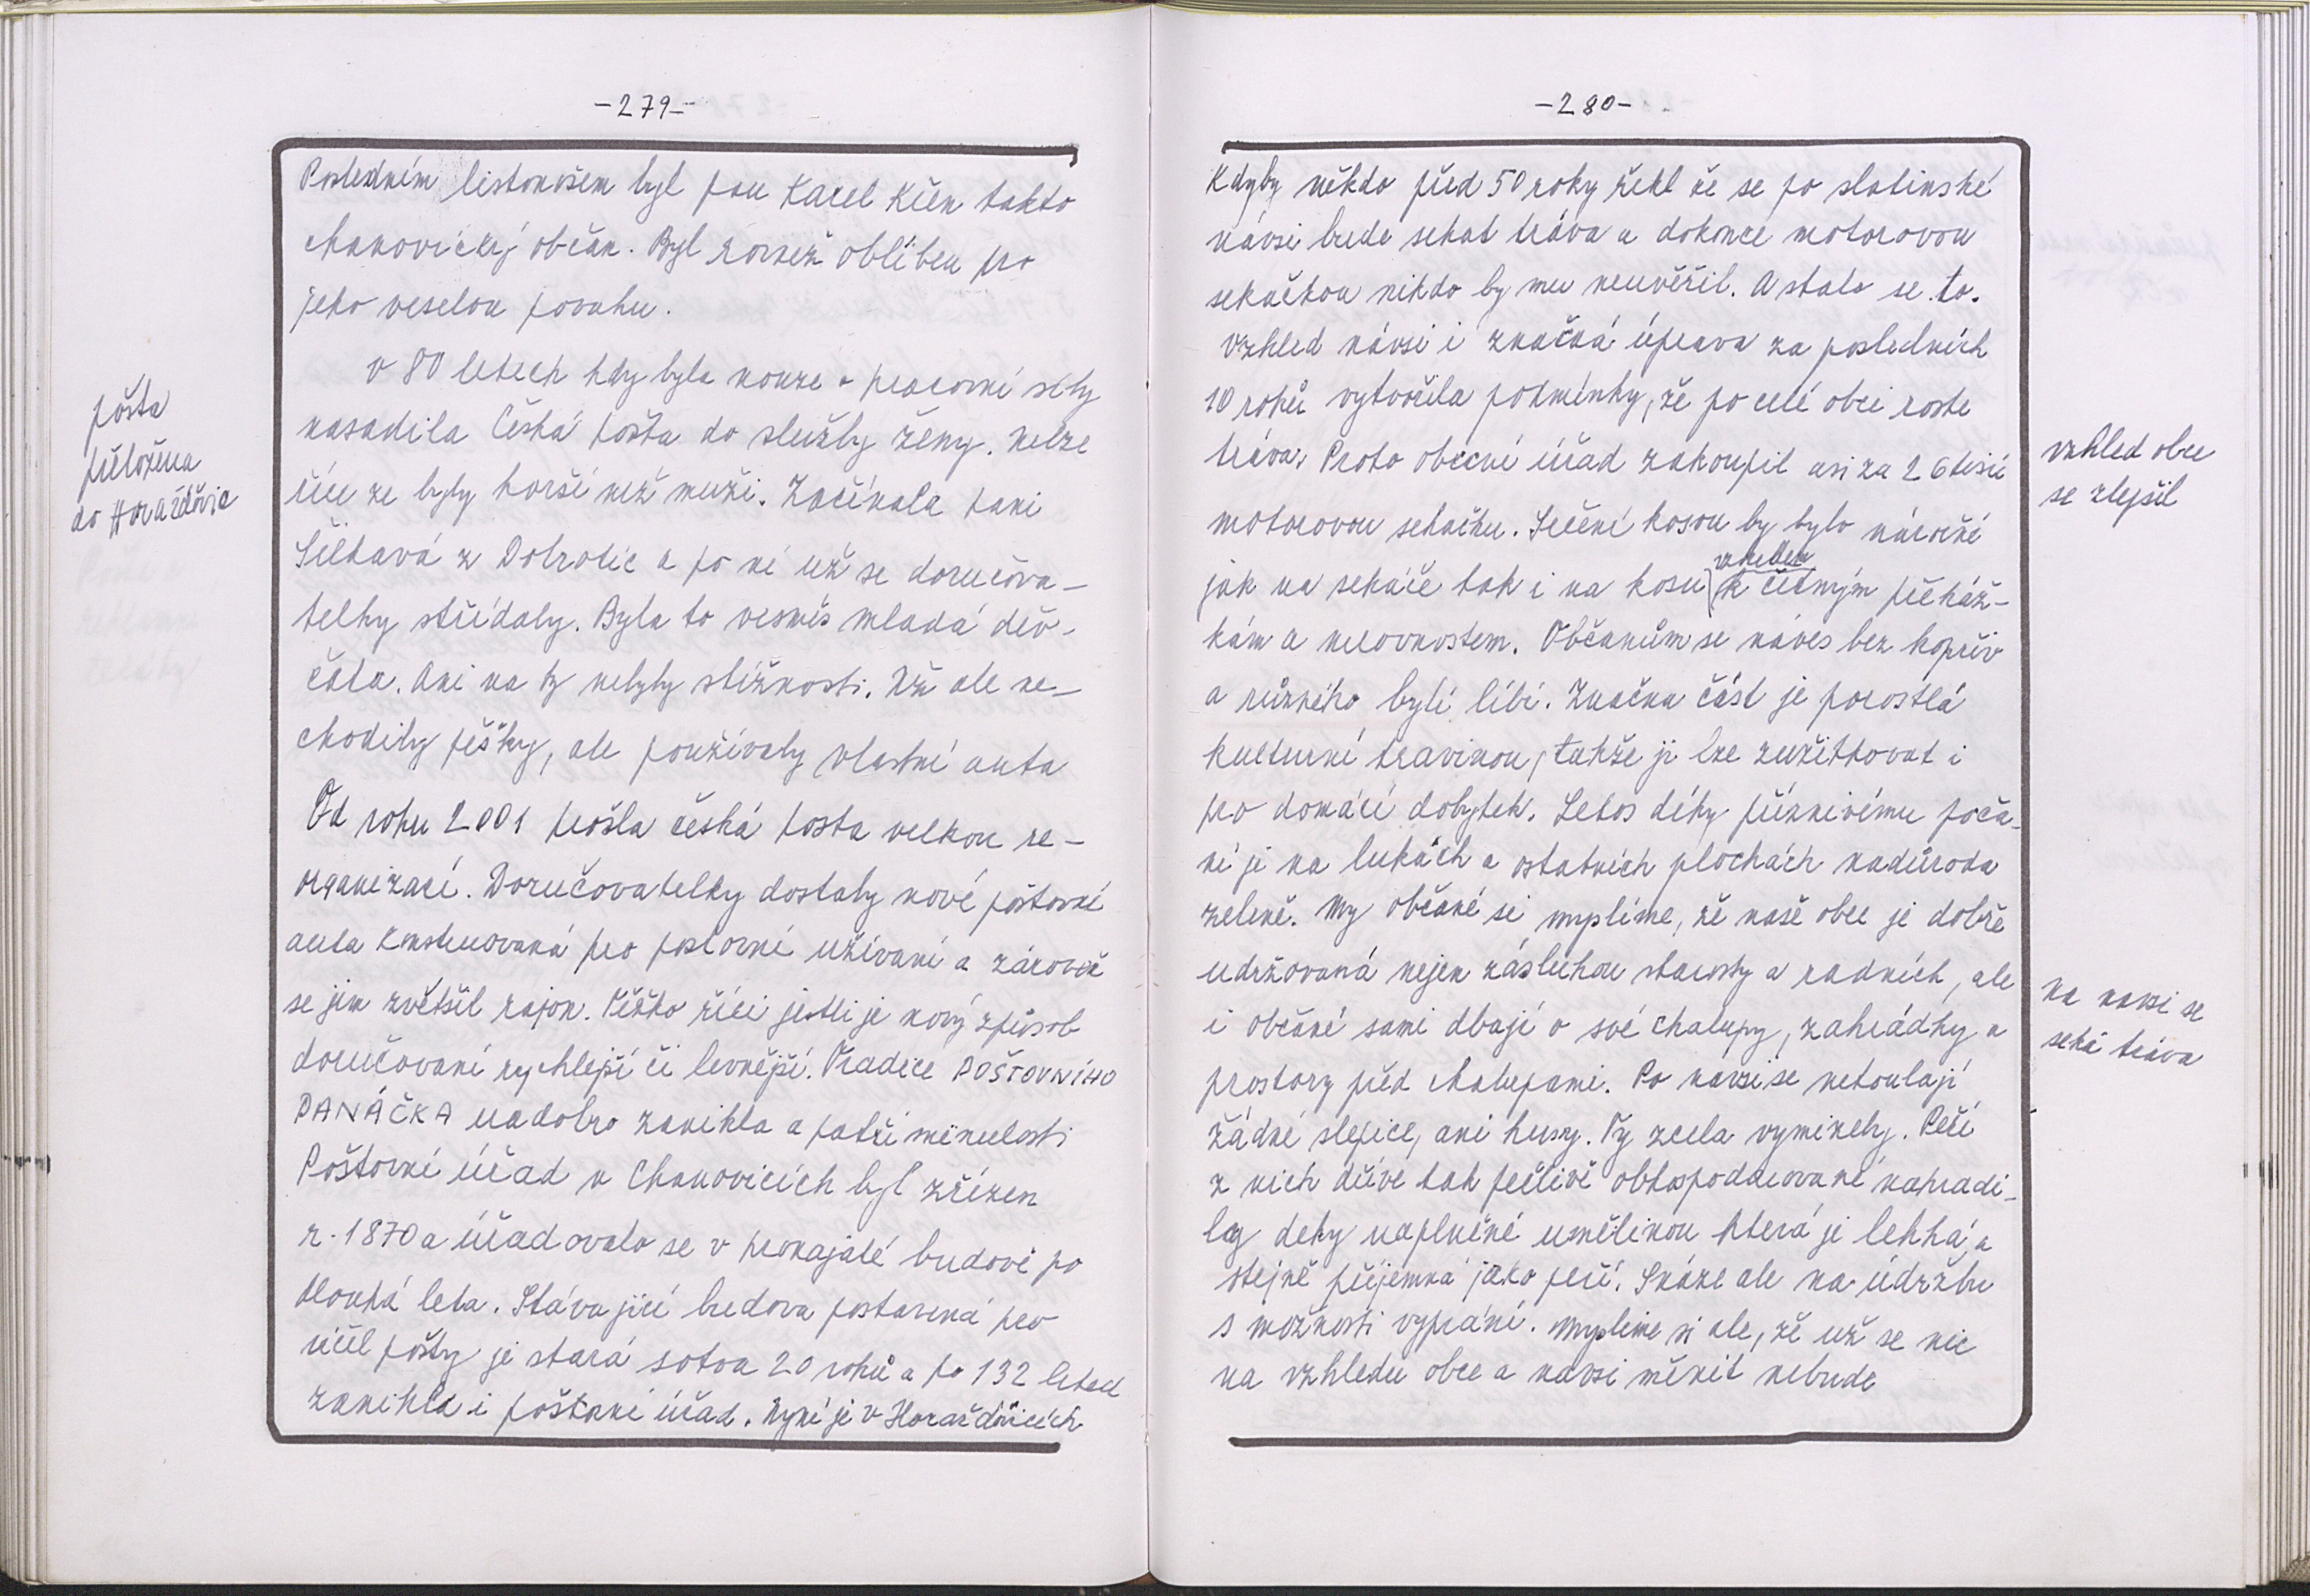 -279-
Posledním listonošem byl pan Karel Křen takto
chanovický občan. Byl rovněž oblíben pro
jeho veselou povahu.
v 80 letech kdy byla nouze o pracovní síly
nasadila Česká pošta do služby ženy. Nelze
říci ze byly horší než muži. Začínala paní
Šiltavá z Dobrotic a po ní už se doručova-
telky střídaly. Byla to vesměs mladá děv-
čata. Ani na ty nebyly stížnosti. Už ale ne-
chodily pěšky, ale používaly vlastní auta
Od roku 2001 prošla česká pošta velkou re-
organizací. Doručovatelky dostaly nové poštovní
auta konstruovaná pro poštovní užívaní a zároveň
se jim zvětšil rajon. Těžko říci jestli je nový způsob
doručovaní rychlejší či levnější. Tradice POŠTOVNÍHO
PANÁČKA nadobro zanikla a patří minulosti
Poštovní úřad v Chanovicích byl zřízen
r. 1870 a úřadovalo se v pronajaté budově po
dlouhá leta. Stávající budova postavená pro
účel pošty je stará sotva 20 roků a po 132 letech
zanikla i poštovní úřad. Nyní je v Horaždovicích
pošta
přeložena
do Horaždovic
-280-
Kdyby někdo před 50 roky řekl že se po slatinské
návsi bude sekat tráva a dokonce motorovou
sekačkou nikdo by mu neuvěřil. A stalo se to.
Vzhled návsi i značná úprava za posledních
10 roků vytvořila podmínky, že po celé obci roste
tráva. Proto obecní úřad zakoupil asi za 26 tisíc
motorovou sekačku. Sečení kosou by bylo náročné
vzhledem
jak na sekáče tak i na kosu k četným překáž-
kám a nerovnostem. Občanům se náves bez kopřiv
a různého bylí líbí. Značna část je porostlá
kulturní travinou, takže ji lze zužitkovat i
pro domácí dobytek. Letos díky příznivému poča-
sí je na lukách a ostatních plochách nadúroda
zeleně. My občané si myslíme, že naše obec je dobře
udržovaná nejen zásluhou starosty a radních, ale
i občané sami dbají o své chalupy, zahrádky a
prostory před chalupami. Po návsi se netoulají
žádné slepice, ani husy. Ty zcela vyminely. Peří
z nich dříve tak pečlivě obhospodařované nahradi-
ly deky naplněné umělinou která je lehká a
stejně příjemná jako peří. Snáze ale na údržbu
s možnosti vyprání. Myslíme si ale, že už se nic
na vzhledu obce a návsi měnit nebude
vzhled obce
se zlepšil
na navsi se
seká tráva